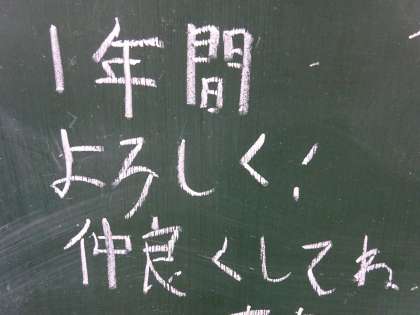 1年間
よろしく!
仲良くしてね